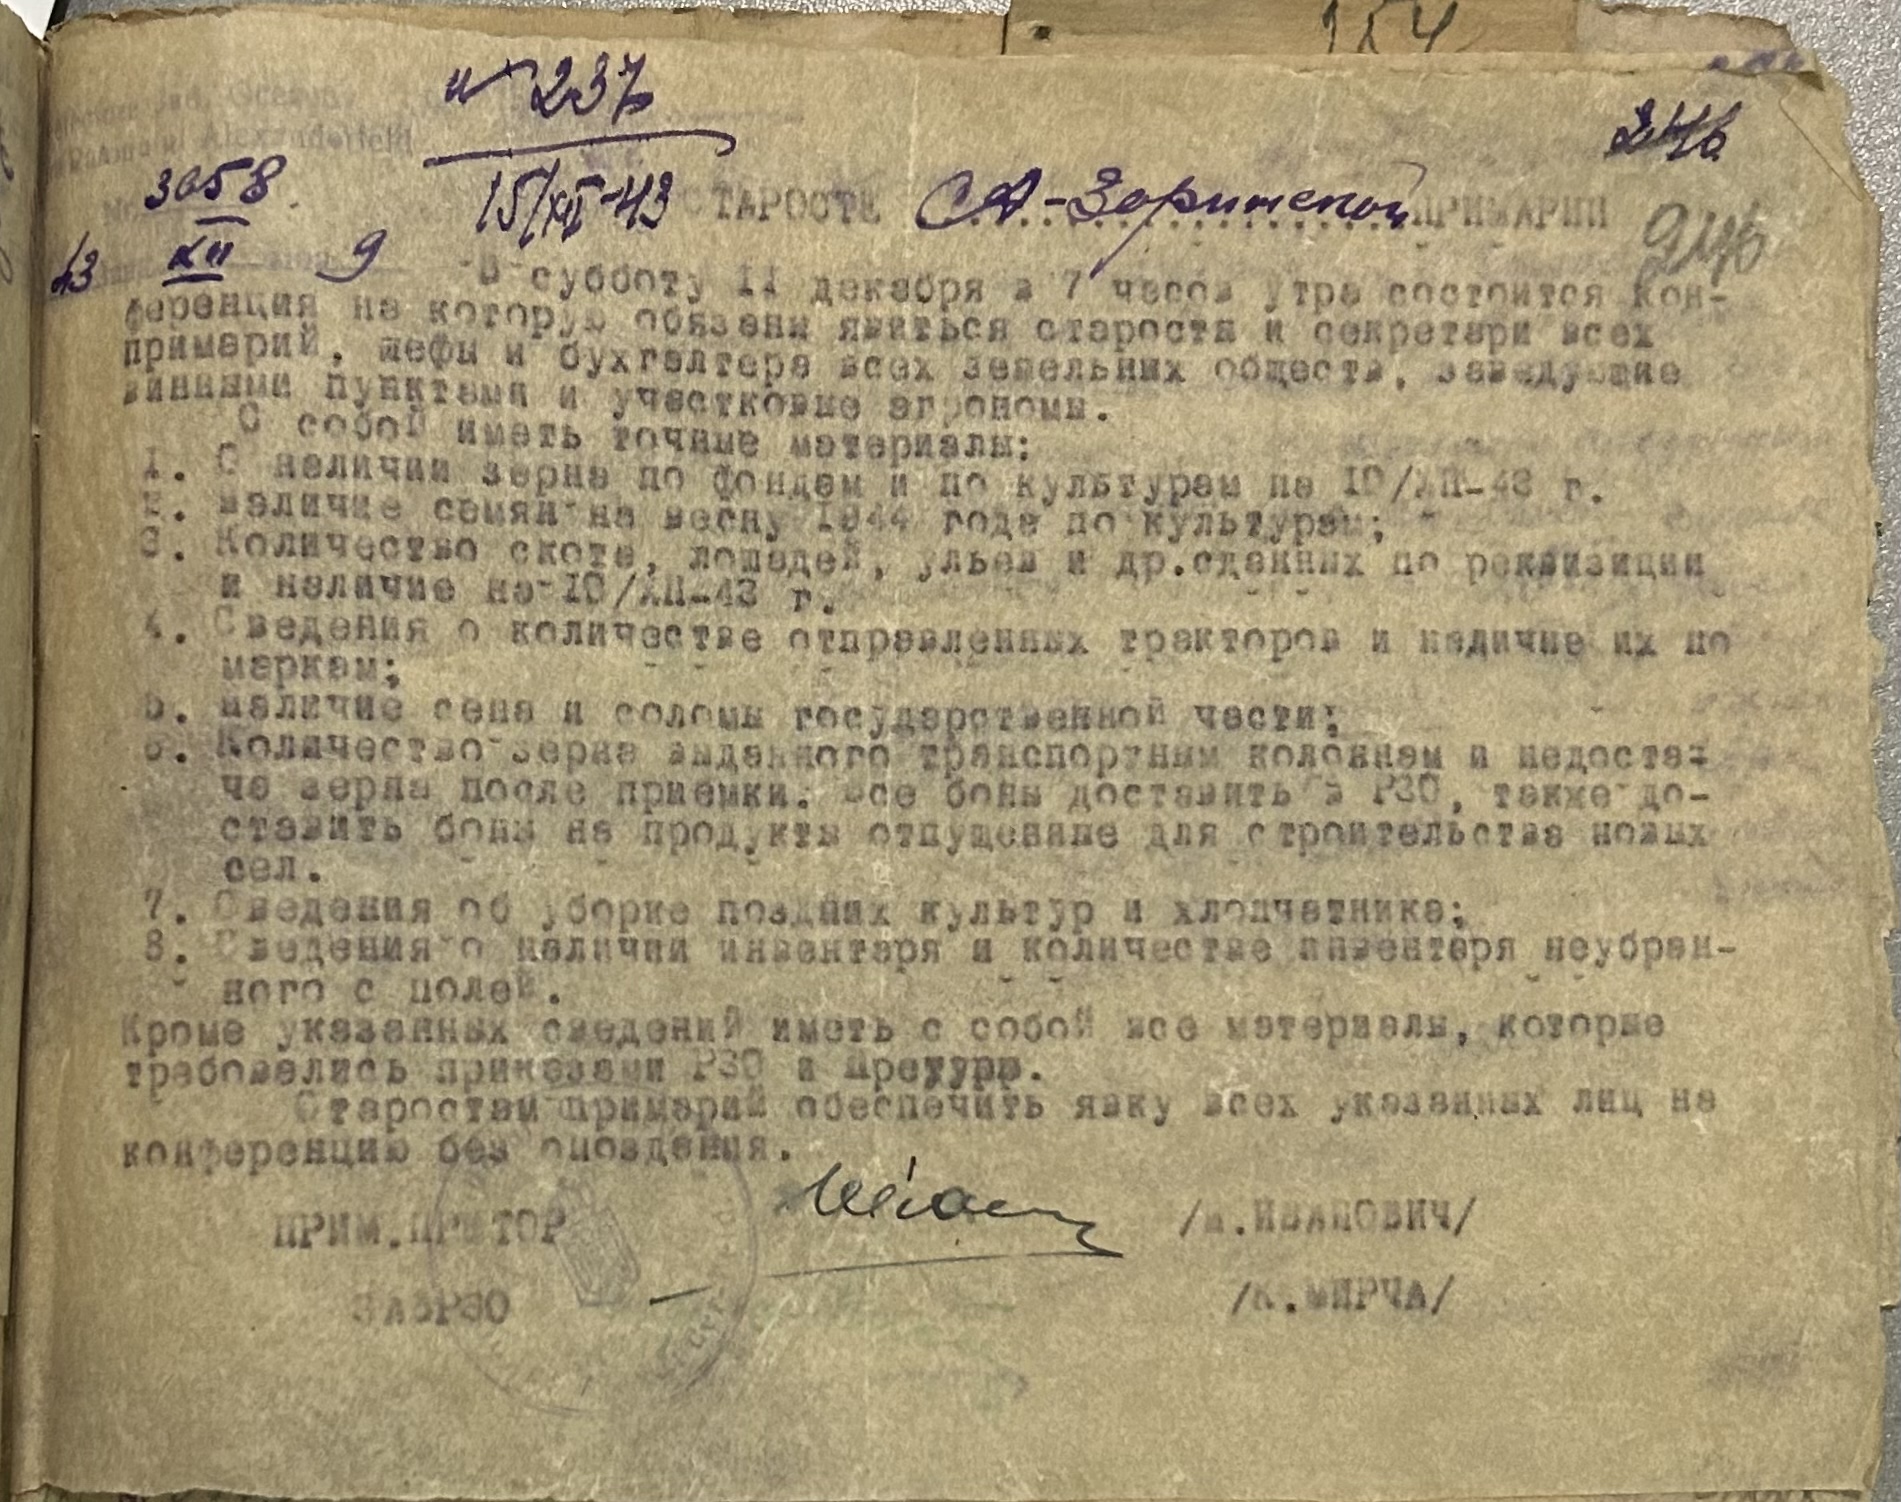 154
№ 237
246
Alexanderfeld
3058
15/XII-43
СТАРОСТЕ СА-Заринской ПРИМАРИИ
246
43 XII 9
В субботу 11 декабря в 7 часов утра состоится кон-
ференция на которую обязаны явиться старосты и секретари всех
примарий, шефы и бухгалтера всех земельных обществ, заведующие
винными пунктами и участковые агрономы.
С собой иметь точные материалы:
1. О наличии зерна по фондам и по культурам на 10/ХП-43 г.
2. Наличие семян на весну 1944 года по культурам;
3. Количество скота, лошадей, ульев и др.сданных по реквизиции
и наличие на 10/ХП-43 г.
4. Сведения о количестве отправленных тракторов и наличие их по
маркам;
5. Наличие сена и соломы государственной части;
6. Количество зерна выданного транспортным колоннам и недоста-
че зерна после приемки. Все боны доставить в РЗО, также до-
ставить боны на продукты отпущенные для строительства новых
сел.
7. Сведения об уборке поздних культур и хлопчатника;
8. Сведения о наличии инвентаря и количестве инвентаря неубран-
ного с полей.
Кроме указанных сведений иметь с собой все материалы, которые
требовались приказами РЗО и Претуры.
Старостам примарий обеспечить явку всех указанных лиц на
конференцию без опоздания.
ПРИМ.ПРЕТОР /И.ИВАНОВИЧ/
ЗАВРЗО /К.МИРЧА/